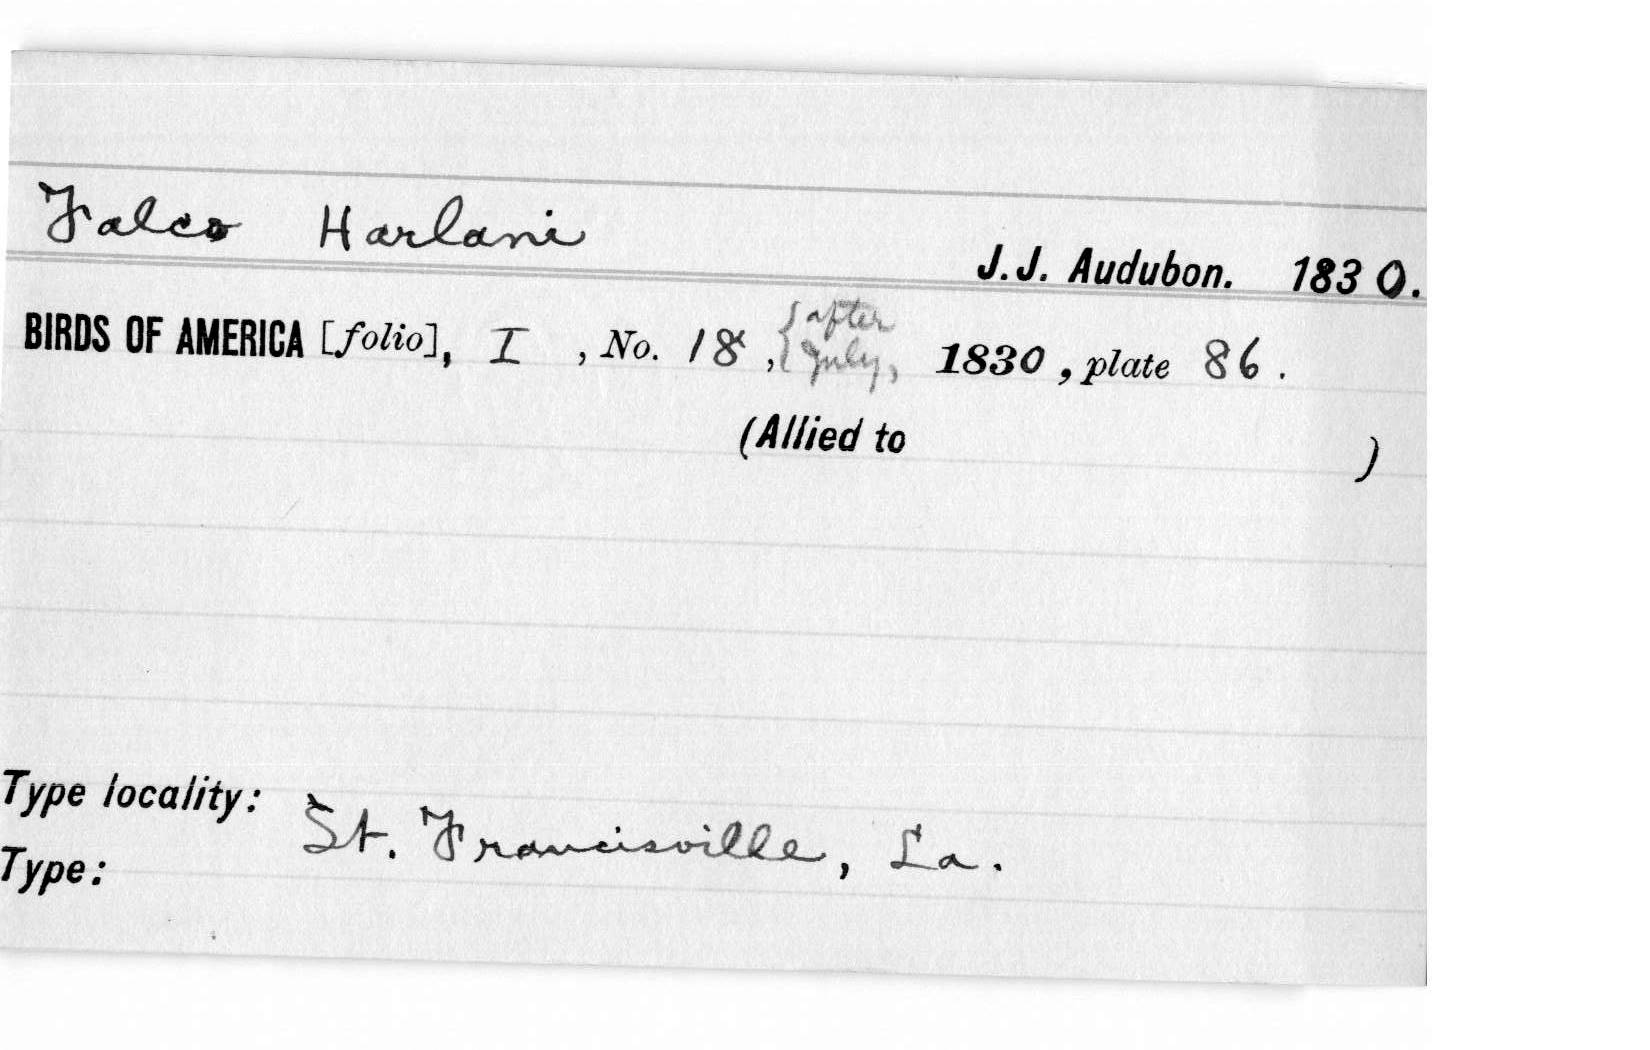 Falco Harlani
J.J. Audubon. 1830.
BIRDS OF AMERICA [folio], I , No. 18 , { after July, 1830 , plate 86 .
(Allied to )
Type locality: St. Francisville, La.
Type: